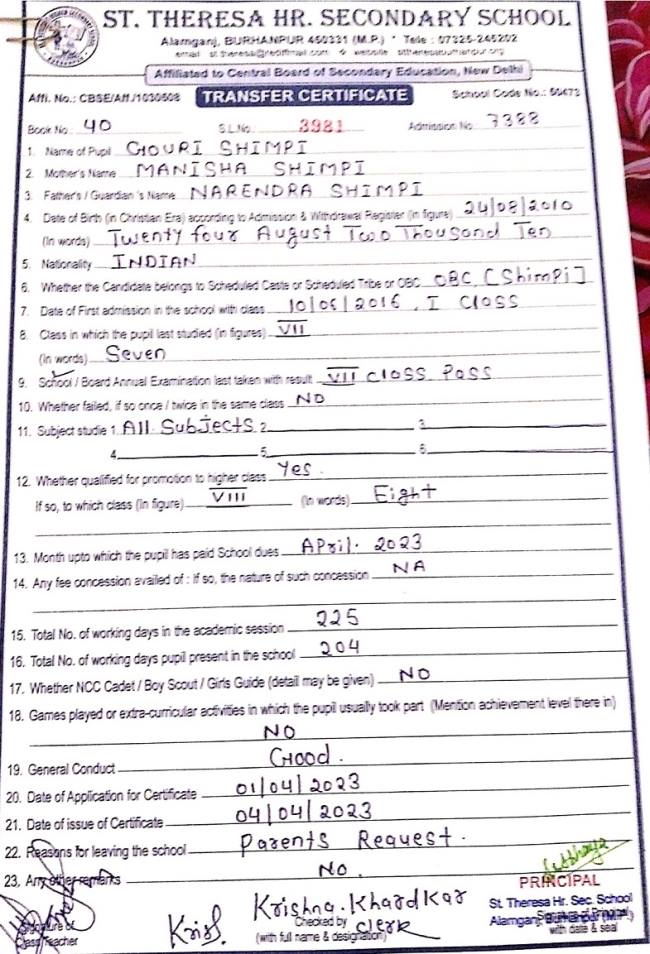 ST. THERESA HR. SECONDARY SCHOOL
Alamganj, BURHANPUR 450331 (M.P.) * Tele : 07325-245202
email st.theresa@rediffmail.com website sttheresaburhanpur.org
Affiliated to Central Board of Secondary Education, New Delhi
Affi. No.: CBSE/Aff./1030508 TRANSFER CERTIFICATE School Code No.: 50473
Book No. 40 S.L.No. 3981 Admission No. 7388
1. Name of Pupil GOURI SHIMPI
2. Mother's Name MANISHA SHIMPI
3. Father's / Guardian 's Name NARENDRA SHIMPI
4. Date of Birth (in Christian Era) according to Admission & Withdrawal Register (in figure) 24/08/2010
(In words) Twenty four August Two Thousand Ten
5. Nationality INDIAN
6. Whether the Candidate belongs to Scheduled Caste or Scheduled Tribe or OBC OBC [Shimpi]
7. Date of First admission in the school with class 10/06/2016, I Class
8. Class in which the pupil last studied (in figures) VII
(In words) Seven
9. School / Board Annual Examination last taken with result VII Class Pass
10. Whether failed, if so once / twice in the same class NO
11. Subject studie 1. All Subjects 2. 3.
4. 5. 6.
12. Whether qualified for promotion to higher class Yes.
If so, to which class (in figure) VIII (In words) Eight
13. Month upto which the pupil has paid School dues April. 2023
14. Any fee concession availed of : If so, the nature of such concession NA
15. Total No. of working days in the academic session 225
16. Total No. of working days pupil present in the school 204
17. Whether NCC Cadet / Boy Scout / Girls Guide (detail may be given) NO
18. Games played or extra-curricular activities in which the pupil usually took part (Mention achievement level there in)
NO
19. General Conduct Good.
20. Date of Application for Certificate 01/04/2023
21. Date of issue of Certificate 04/04/2023
22. Reasons for leaving the school Parents Request.
23, Any other remarks No.
PRINCIPAL
St. Theresa Hr. Sec. School
Alamganj, Burhanpur (M.P.)
Signature of Principal
with date & seal
Krishna. Khardkar
Checked by Clerk
(with full name & designation)
Signature of
Class Teacher